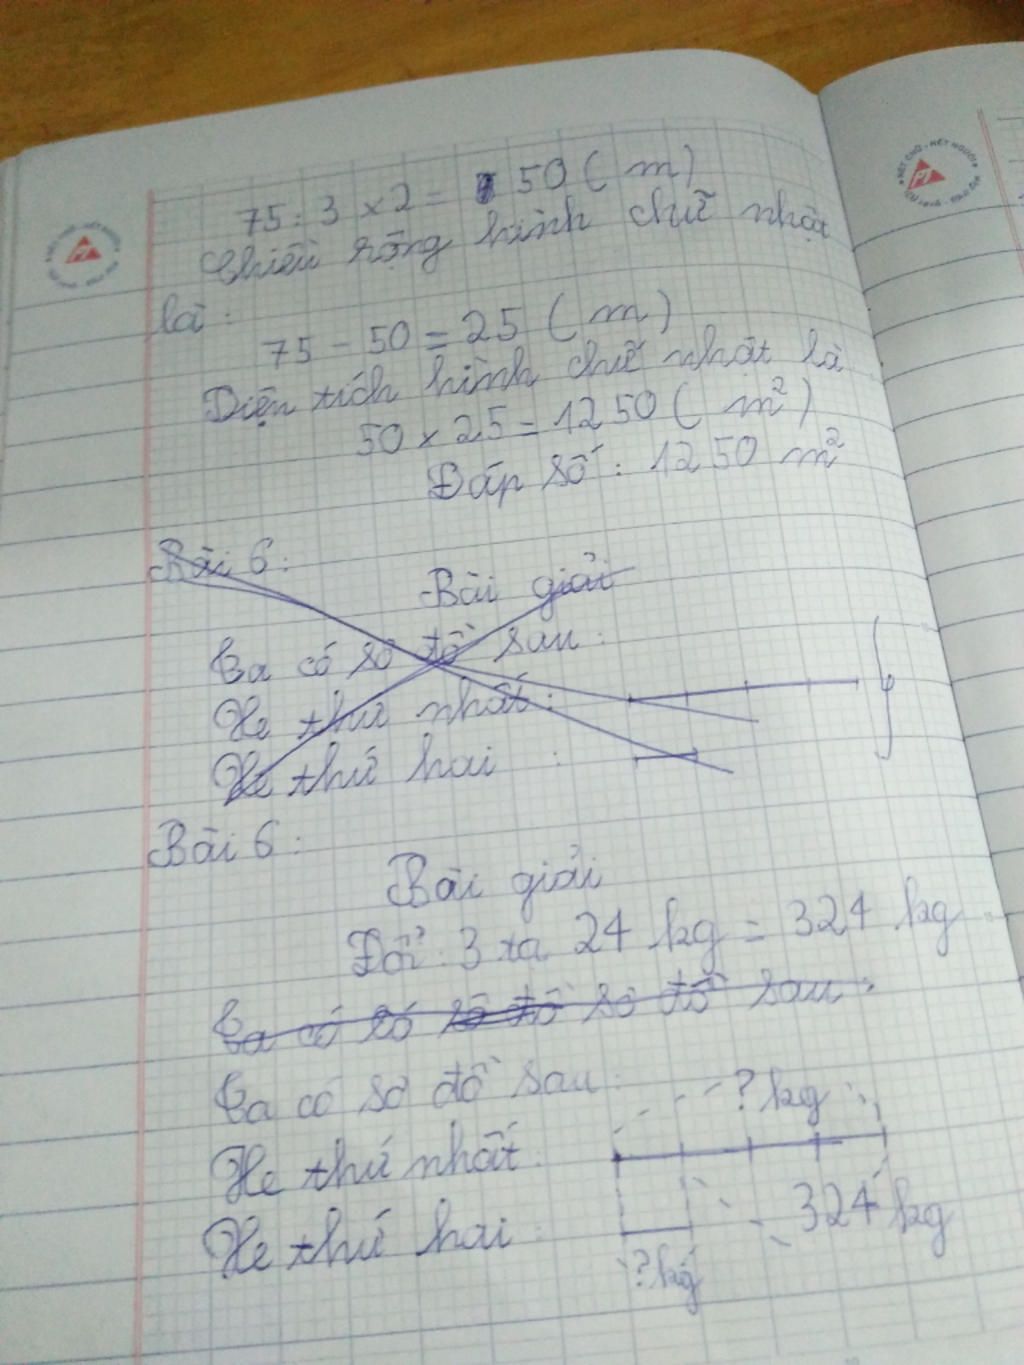 75 : 3 x 2 = 50 ( m )
Chiều rộng hình chữ nhật
là :
75 - 50 = 25 ( m )
Diện tích hình chữ nhật là
50 x 25 = 1250 ( m² )
Đáp số : 1250 m²
Bài 6 :
Bài giải
Ta có sơ đồ sau :
Xe thứ nhất :
Xe thứ hai :
Bài 6 :
Bài giải
Đổi : 3 tạ 24 kg = 324 kg
Ta có số sơ đồ sơ đồ sau :
Ta có sơ đồ sau :
? kg
Xe thứ nhất :
324 kg
Xe thứ hai :
? kg